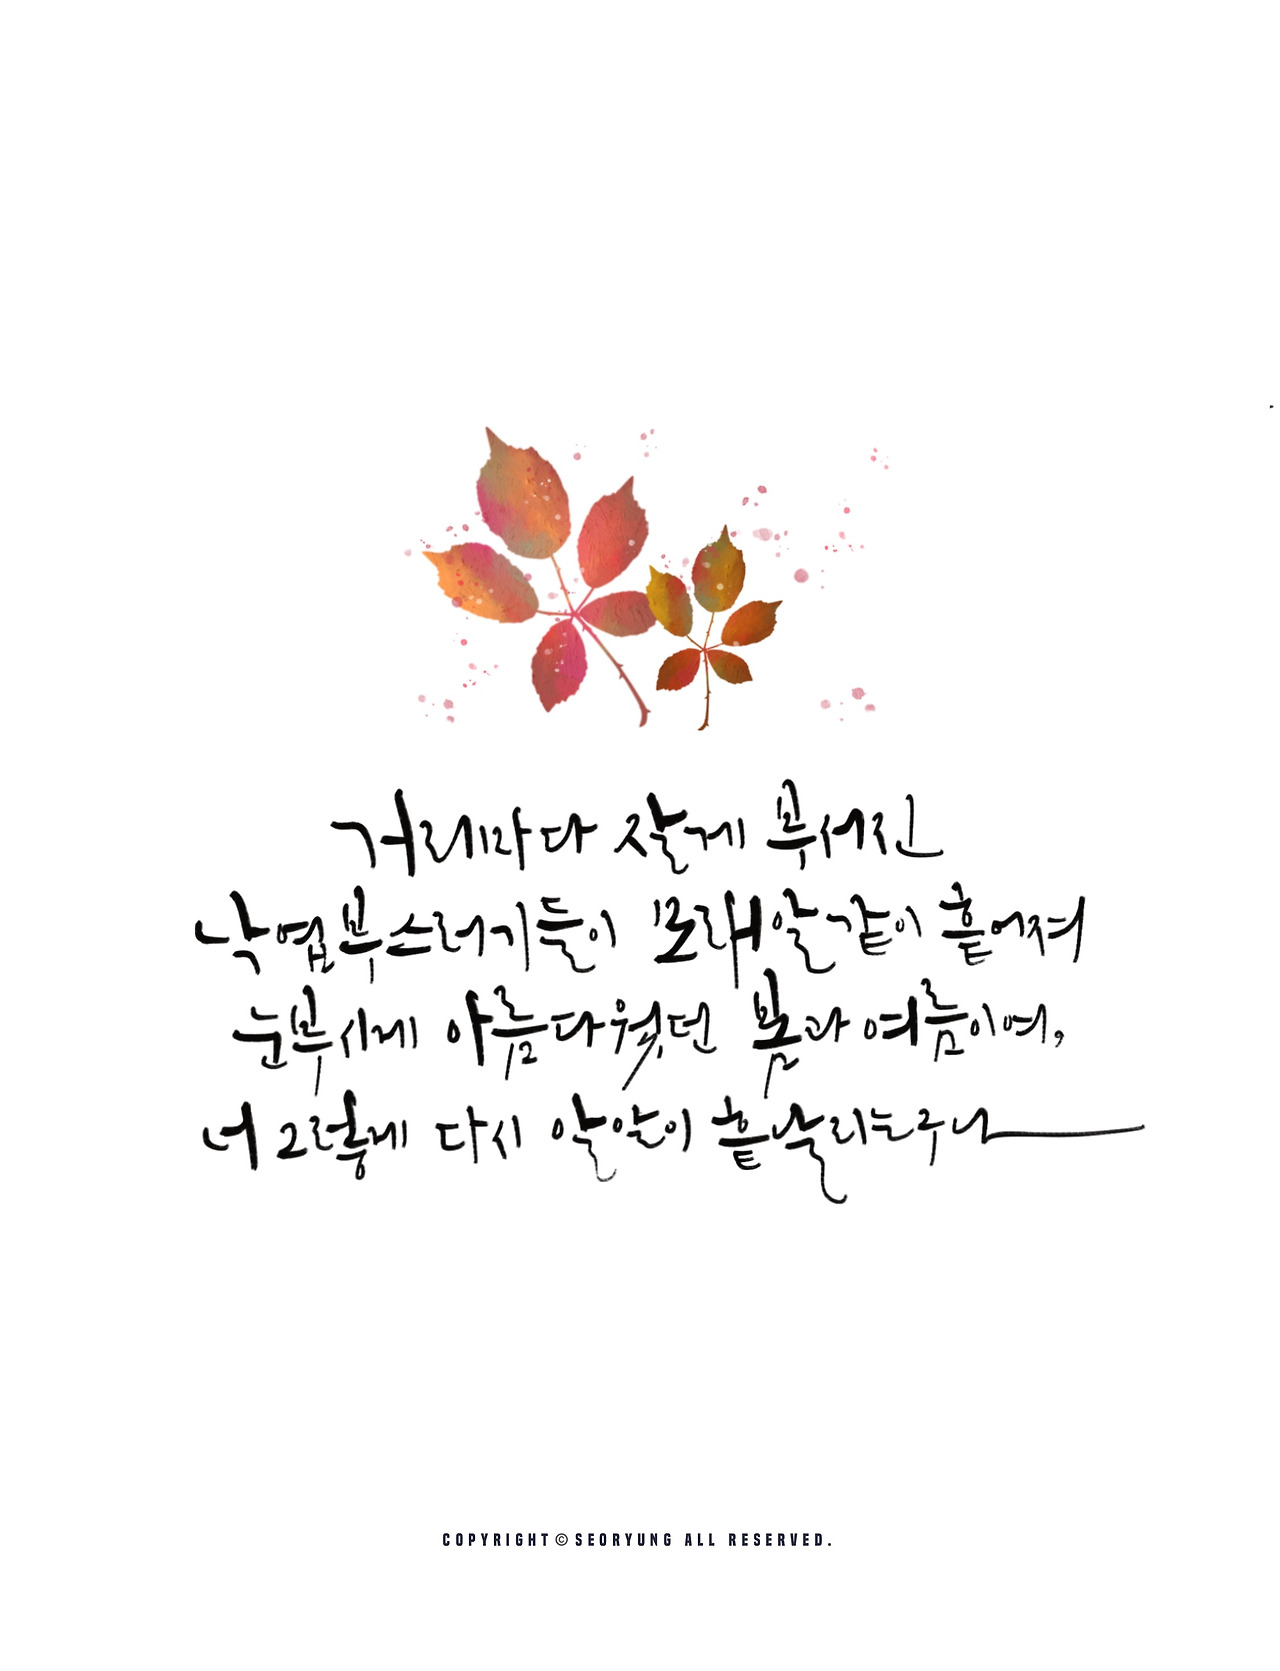 거리마다 잘게 부서진
낙엽부스러기들이 모래알 같이 흩어져
눈부시게 아름다웠던 봄과 여름이여,
너 그렇게 다시 알알이 흩날리는구나
COPYRIGHT © SEORYUNG ALL RESERVED.